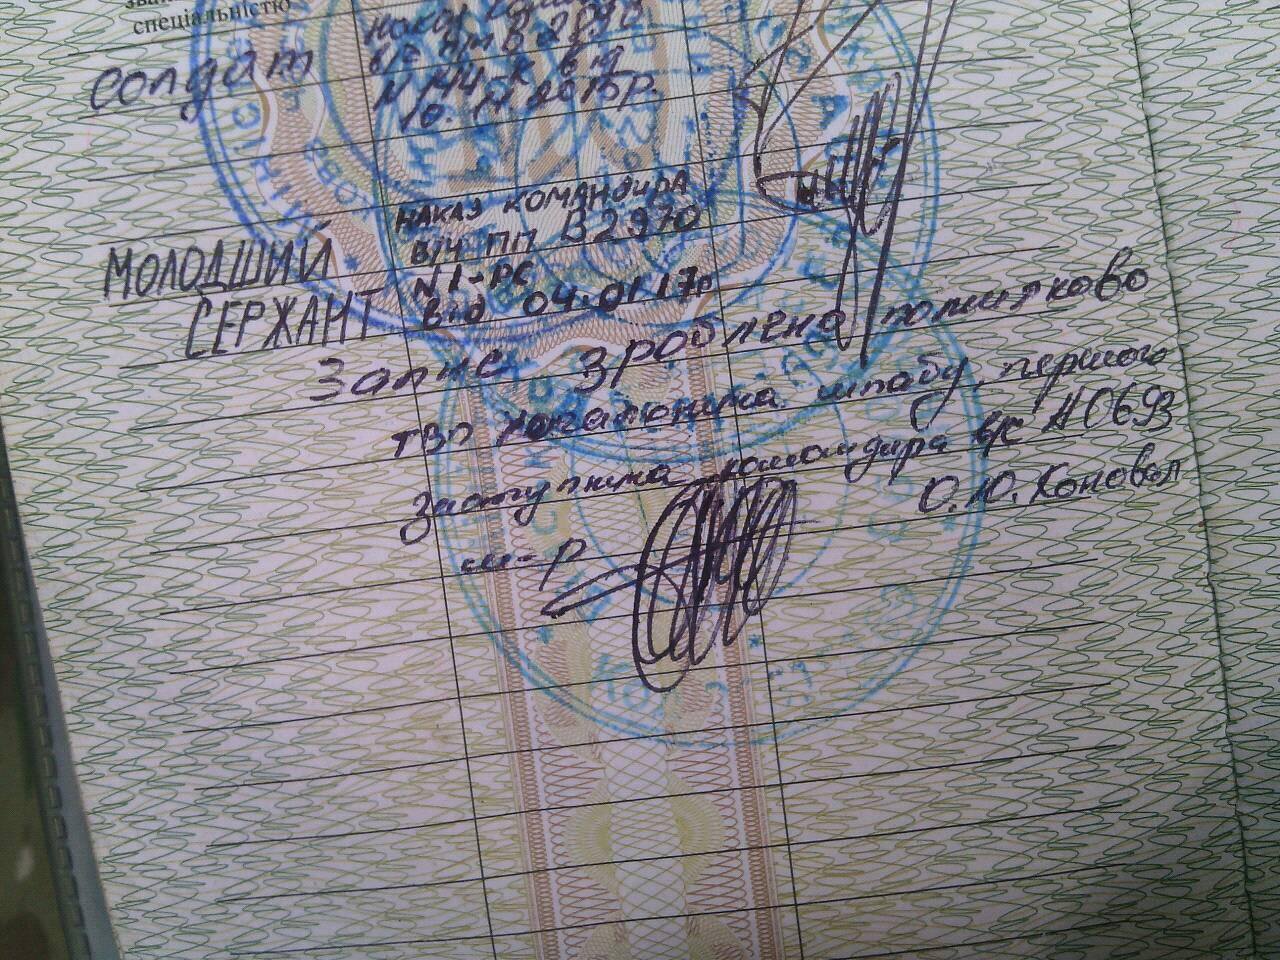 спеціальністю
солдат
наказ
В2970
N 144-К від
10.11.2015р.
МОЛОДШИЙ
СЕРЖАНТ
НАКАЗ КОМАНДИРА
В/Ч ПП В2970
N1-РС
від 04.01.17р
Запис зроблено помилково
ТВП начальника штабу, першого
заступника командира в/ч А0693
м-р О.Ю. Коновал